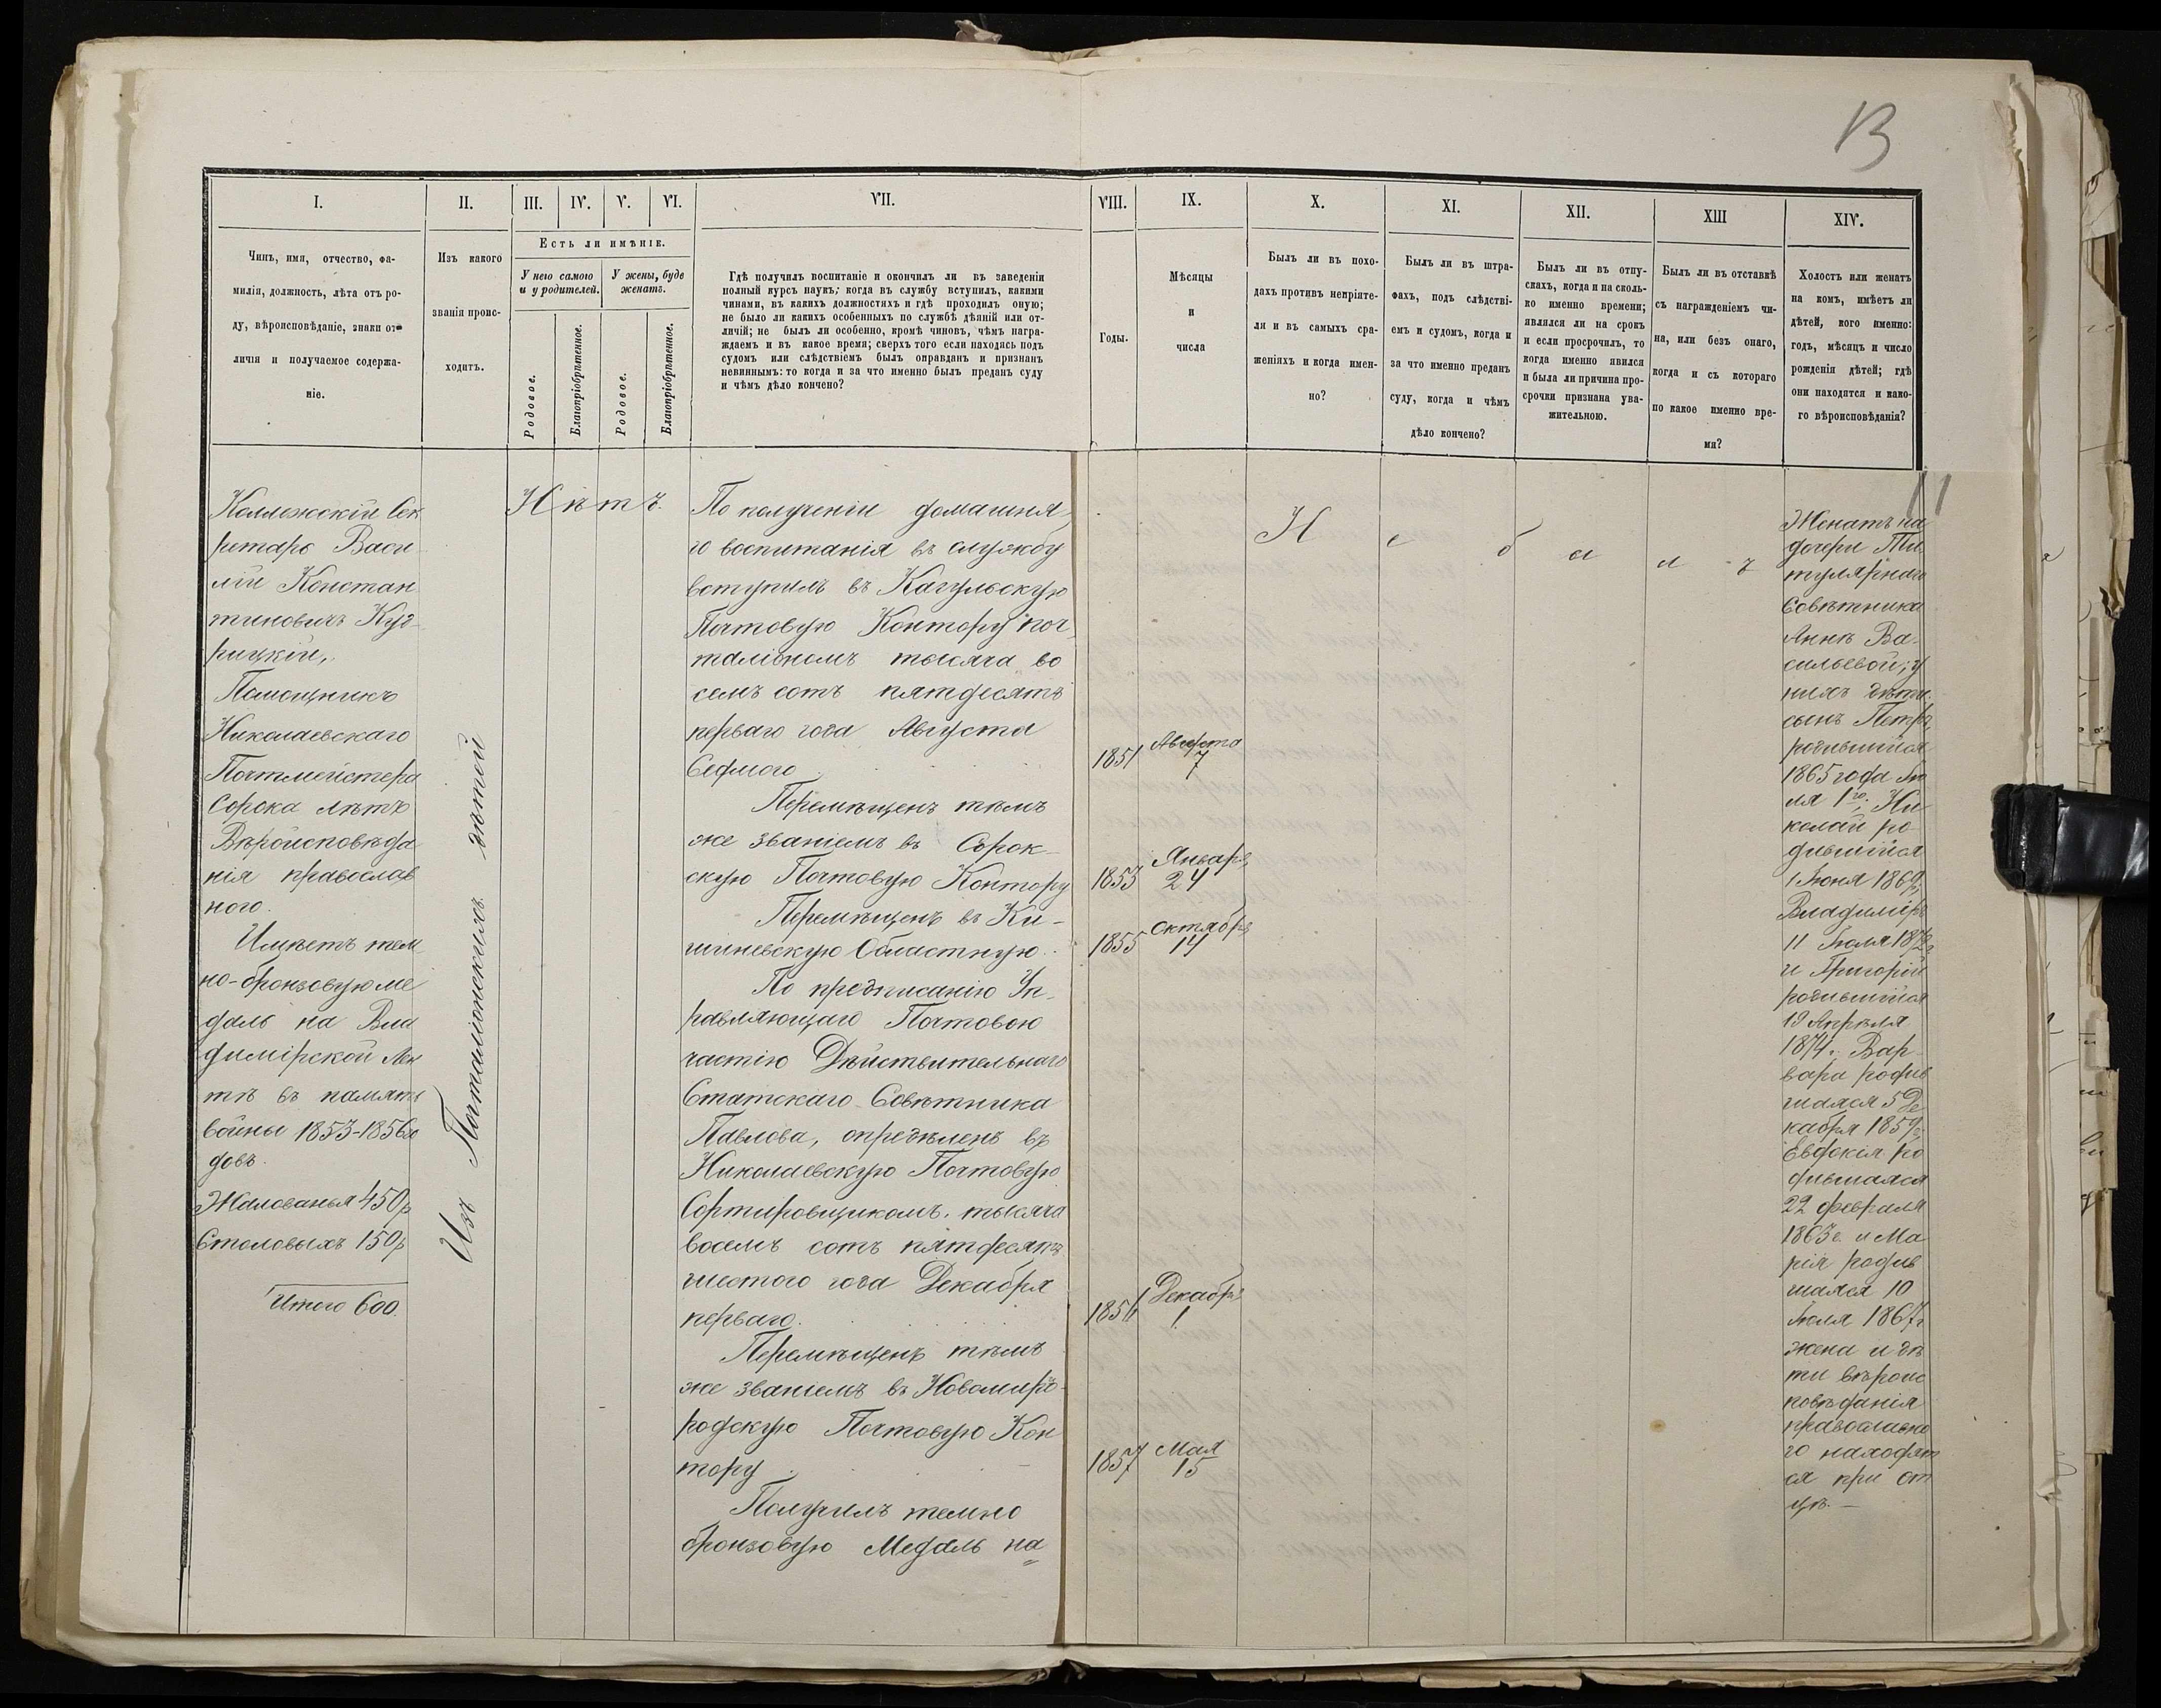 13
I.
Чинъ, имя, отчество, фа-
милія, должность, лѣта отъ ро-
ду, вѣроисповѣданіе, знаки от-
личія и получаемое содержа-
ніе.
II.
Изъ какого
званія проис-
ходитъ.
III. IV. V. VI.
Есть ли имѣніе.
У него самого
и у родителей.
У жены, буде
женатъ.
Родовое.
Благопріобрѣтенное.
Родовое.
Благопріобрѣтенное.
VII.
Гдѣ получилъ воспитаніе и окончилъ ли въ заведеніи
полный курсъ наукъ; когда въ службу вступилъ, какими
чинами, въ какихъ должностяхъ и гдѣ проходилъ оную;
не было ли какихъ особенныхъ по службѣ дѣяній или от-
личій; не былъ ли особенно, кромѣ чиновъ, чѣмъ награ-
ждаемъ и въ какое время; сверхъ того если находясь подъ
судомъ или слѣдствіемъ былъ оправданъ и признанъ
невиннымъ: то когда и за что именно былъ преданъ суду
и чѣмъ дѣло кончено?
VIII.
Годы.
IX.
Мѣсяцы
и
числа
X.
Былъ ли въ похо-
дахъ противъ непріяте-
ля и въ самыхъ сра-
женіяхъ и когда имен-
но?
XI.
Былъ ли въ штра-
фахъ, подъ слѣдстві-
емъ и судомъ, когда и
за что именно преданъ
суду, когда и чѣмъ
дѣло кончено?
XII.
Былъ ли въ отпу-
скахъ, когда и на сколь-
ко именно времени;
являлся ли на срокъ
и если просрочилъ, то
когда именно явился
и была ли причина про-
срочки признана ува-
жительною.
XIII
Былъ ли въ отставкѣ
съ награжденіемъ чи-
на, или безъ онаго,
когда и съ котораго
по какое именно вре-
мя?
XIV.
Холостъ или женатъ
на комъ, имѣетъ ли
дѣтей, кого именно:
годъ, мѣсяцъ и число
рожденія дѣтей; гдѣ
они находятся и како-
го вѣроисповѣданія?
Коллежскій Сек
ретарь Васи
лій Констан
тиновичъ Куд-
рицкій,
Помощникъ
Николаевскаго
Почтмейстера
Сорока лѣтъ
Вѣроисповѣда
нія православ
ного.
Имѣетъ тем
но-бронзовую ме
даль на Вла
димірской Лен
тѣ въ память
войны 1853-1856 го
довъ.
Жалованья 450 р
Столовыхъ 150 р
Итого 600.
Изъ Почталіонскихъ дѣтей
Нѣтъ.
По полученіи домашня-
го воспитанія въ службу
вступилъ въ Кагульскую
Почтовую Контору поч
таліономъ тысяча во
семъ сотъ пятдесятъ
перваго года Августа
Седмого
Перемѣщенъ тѣмъ
же званіемъ въ Сорок-
скую Почтовую Контору
Перемѣщенъ въ Ки-
шиневскую Областную.
По предписанію Уп-
равляющаго Почтовою
частію Дѣйствительнаго
Статскаго Совѣтника
Павлова, опредѣленъ въ
Николаевскую Почтовую
Сортировщикомъ. тысяча
восемъ сотъ пятдесятъ
шестого года Декабря
перваго.
Перемѣщенъ тѣмъ
же званіемъ въ Новомирго-
родскую Почтовую Кон
тору
Получилъ темно
бронзовую Медаль на
1851 Августа
7
1853 Январь
24
1855 Октябрь
14
1856 Декабрь
1
1857 Мая
15
Не былъ
Женатъ на
дочери Ти
тулярнаго
Совѣтника
Аннѣ Ва-
сильевой; у
нихъ дѣти:
сынъ Петръ,
родившійся
1865 года Iю
ля 1го, Ни
колай ро-
дившійся
1 Iюня 1869 г,
Владиміръ
11 Iюля 1872 г
и Григорій
родившійся
19 Апрѣля
1874 г. Вар
вара родив
шаяся 5 Де
кабря 1859 г,
Евдокія ро
дившаяся
22 февраля
1863 г. и Ма
рія родив
шаяся 10
Iюля 1867 г
жена и дѣ
ти вѣроис
повѣданія
православно
го находят
ся при от
цѣ. —